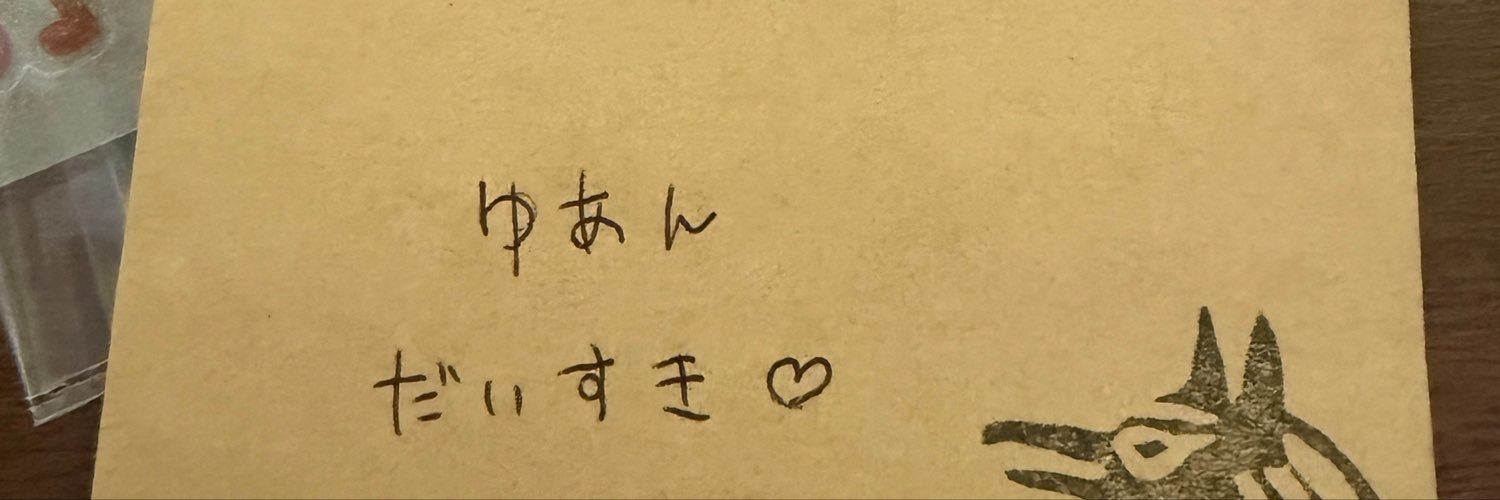 ゆあん
だいすき♡